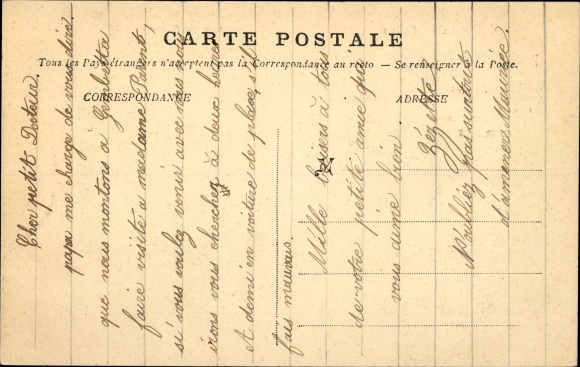 CARTE POSTALE
Tous les Pays étrangers n'acceptent pas la Correspondance au recto — Se renseigner à la Poste.
CORRESPONDANCE
ADRESSE
Cher petit Docteur.
papa me charge de vous dire
que nous montons à Gambetta
faire visite a madame Parent,
si vous voulez venir avec nous nous
irons vous chercher à deux heures
et demi en voiture de place, s'il
fais mauvais.
Mille baisers à tous
de votre petite amie qui
vous aime bien.
Zézette
N'oubliez pas surtout
d'amener Maurice.